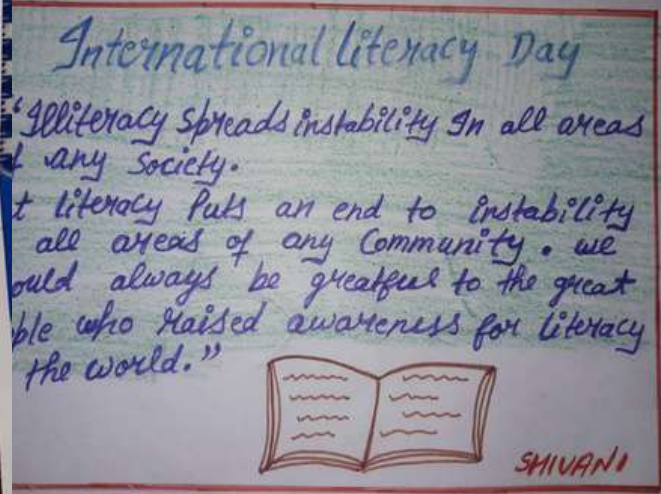 International literacy Day
"Illiteracy spreads instability In all areas
any Society.
literacy Puts an end to instability
all areas of any Community. we
always be greatful to the great
who raised awareness for literacy
the world."
SHIVANI